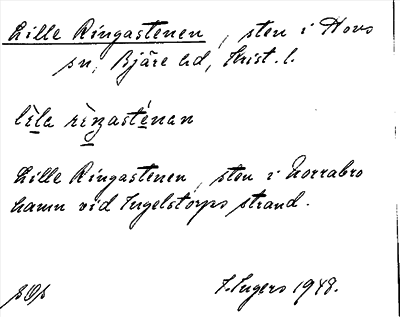 Lille Ringastenen, sten i Hovs
sn, Bjäre hd, Krist. l.
lìla rìŋasténan
Lille Ringastenen, sten i Norrebro
hamn vid Ingelstorps strand.
I. Ingers 1948.